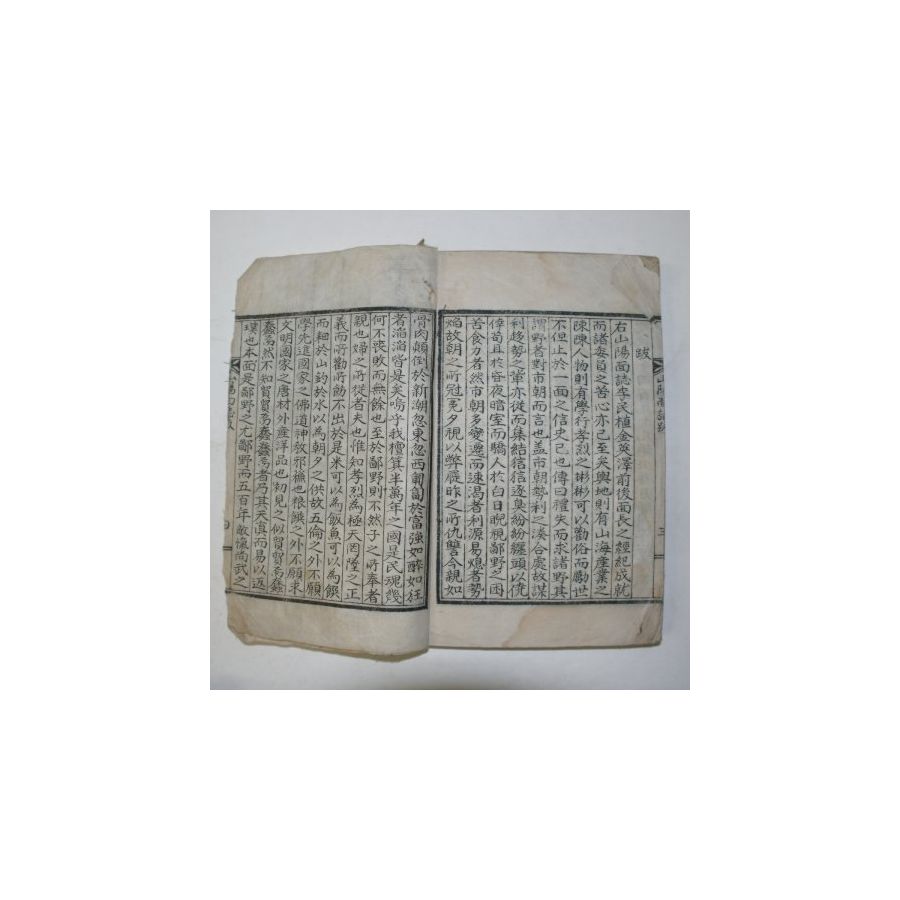 跋
右山陽面誌李民植金英澤前後面長之經紀成就
而諸委員之善心亦已至矣輿地則有山海產業之
陳陳人物則有學行孝烈之彬彬可以勸俗而勵世
不但止於一面之信史已也傳曰禮失而求諸野其
謂野者對市朝而言也盖市朝勢利之湊合處故謀
利趍勢之軰亦從而集結狺狺逐臭紛紛纒頭以僥
倖苟且於昏夜暗室而驕人於白日睨視鄙野之困
苦食力者然市朝多變遷而速渴者利源易熄者勢
焰故朝之所冠冕夕視以弊屣昨之所仇讐今親如
骨肉顚倒於新潮忽東忽西匍匐於富強如醉如狂
者滔滔皆是矣嗚乎我檀箕半萬年之國是民魂幾
何不喪敗而無餘也至於鄙野則不然子之所奉者
親也婦之所從者夫也惟知孝烈為極天罔墜之正
義而所勸所勉不出於是米可以為飯魚可以為饌
而耕於山釣於水以為朝夕之供故五倫之外不願
學先進國家之佛道神敎邪穌也根饌之外不願求
文明國家之唐材外產洋品也初見之似貿貿焉蠢
蠢焉然不知貿貿焉蠢蠢焉者乃其天真而易以返
璞也本面是鄙野之尤鄙野而五百年敵愾尚武之
山陽面誌跋
三
四